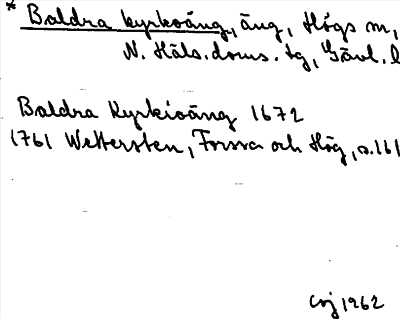 * Baldra kyrkoäng, äng, Högs m,
N. Häls. doms. tg, Gävl. l
Baldra Kyrkioäng 1672
1761 Wettersten, Forssa och Hög, s. 161
1962